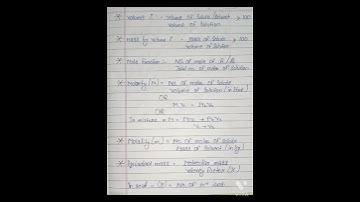 * Volume % = Volume of Solute/Solvent x 100
Volume of Solution
* Mass by Volume % = Mass of Solute x 100
Volume of Solution
* Mole Fraction = No. of mole of
Total no. of moles of Solution
* Molarity (M) = No. of moles of Solute
Volume of Solution (in litre)
OR
M1V1 = M2V2
OR
In mixture = M = M1V1 + M2V2
V1 + V2
* Molality (m) = No. of moles of Solute
Mass of Solvent (in kg)
* Equivalent mass = Molecular mass
Valency Factor (X)
In acid = (X) = No. of H+ ion